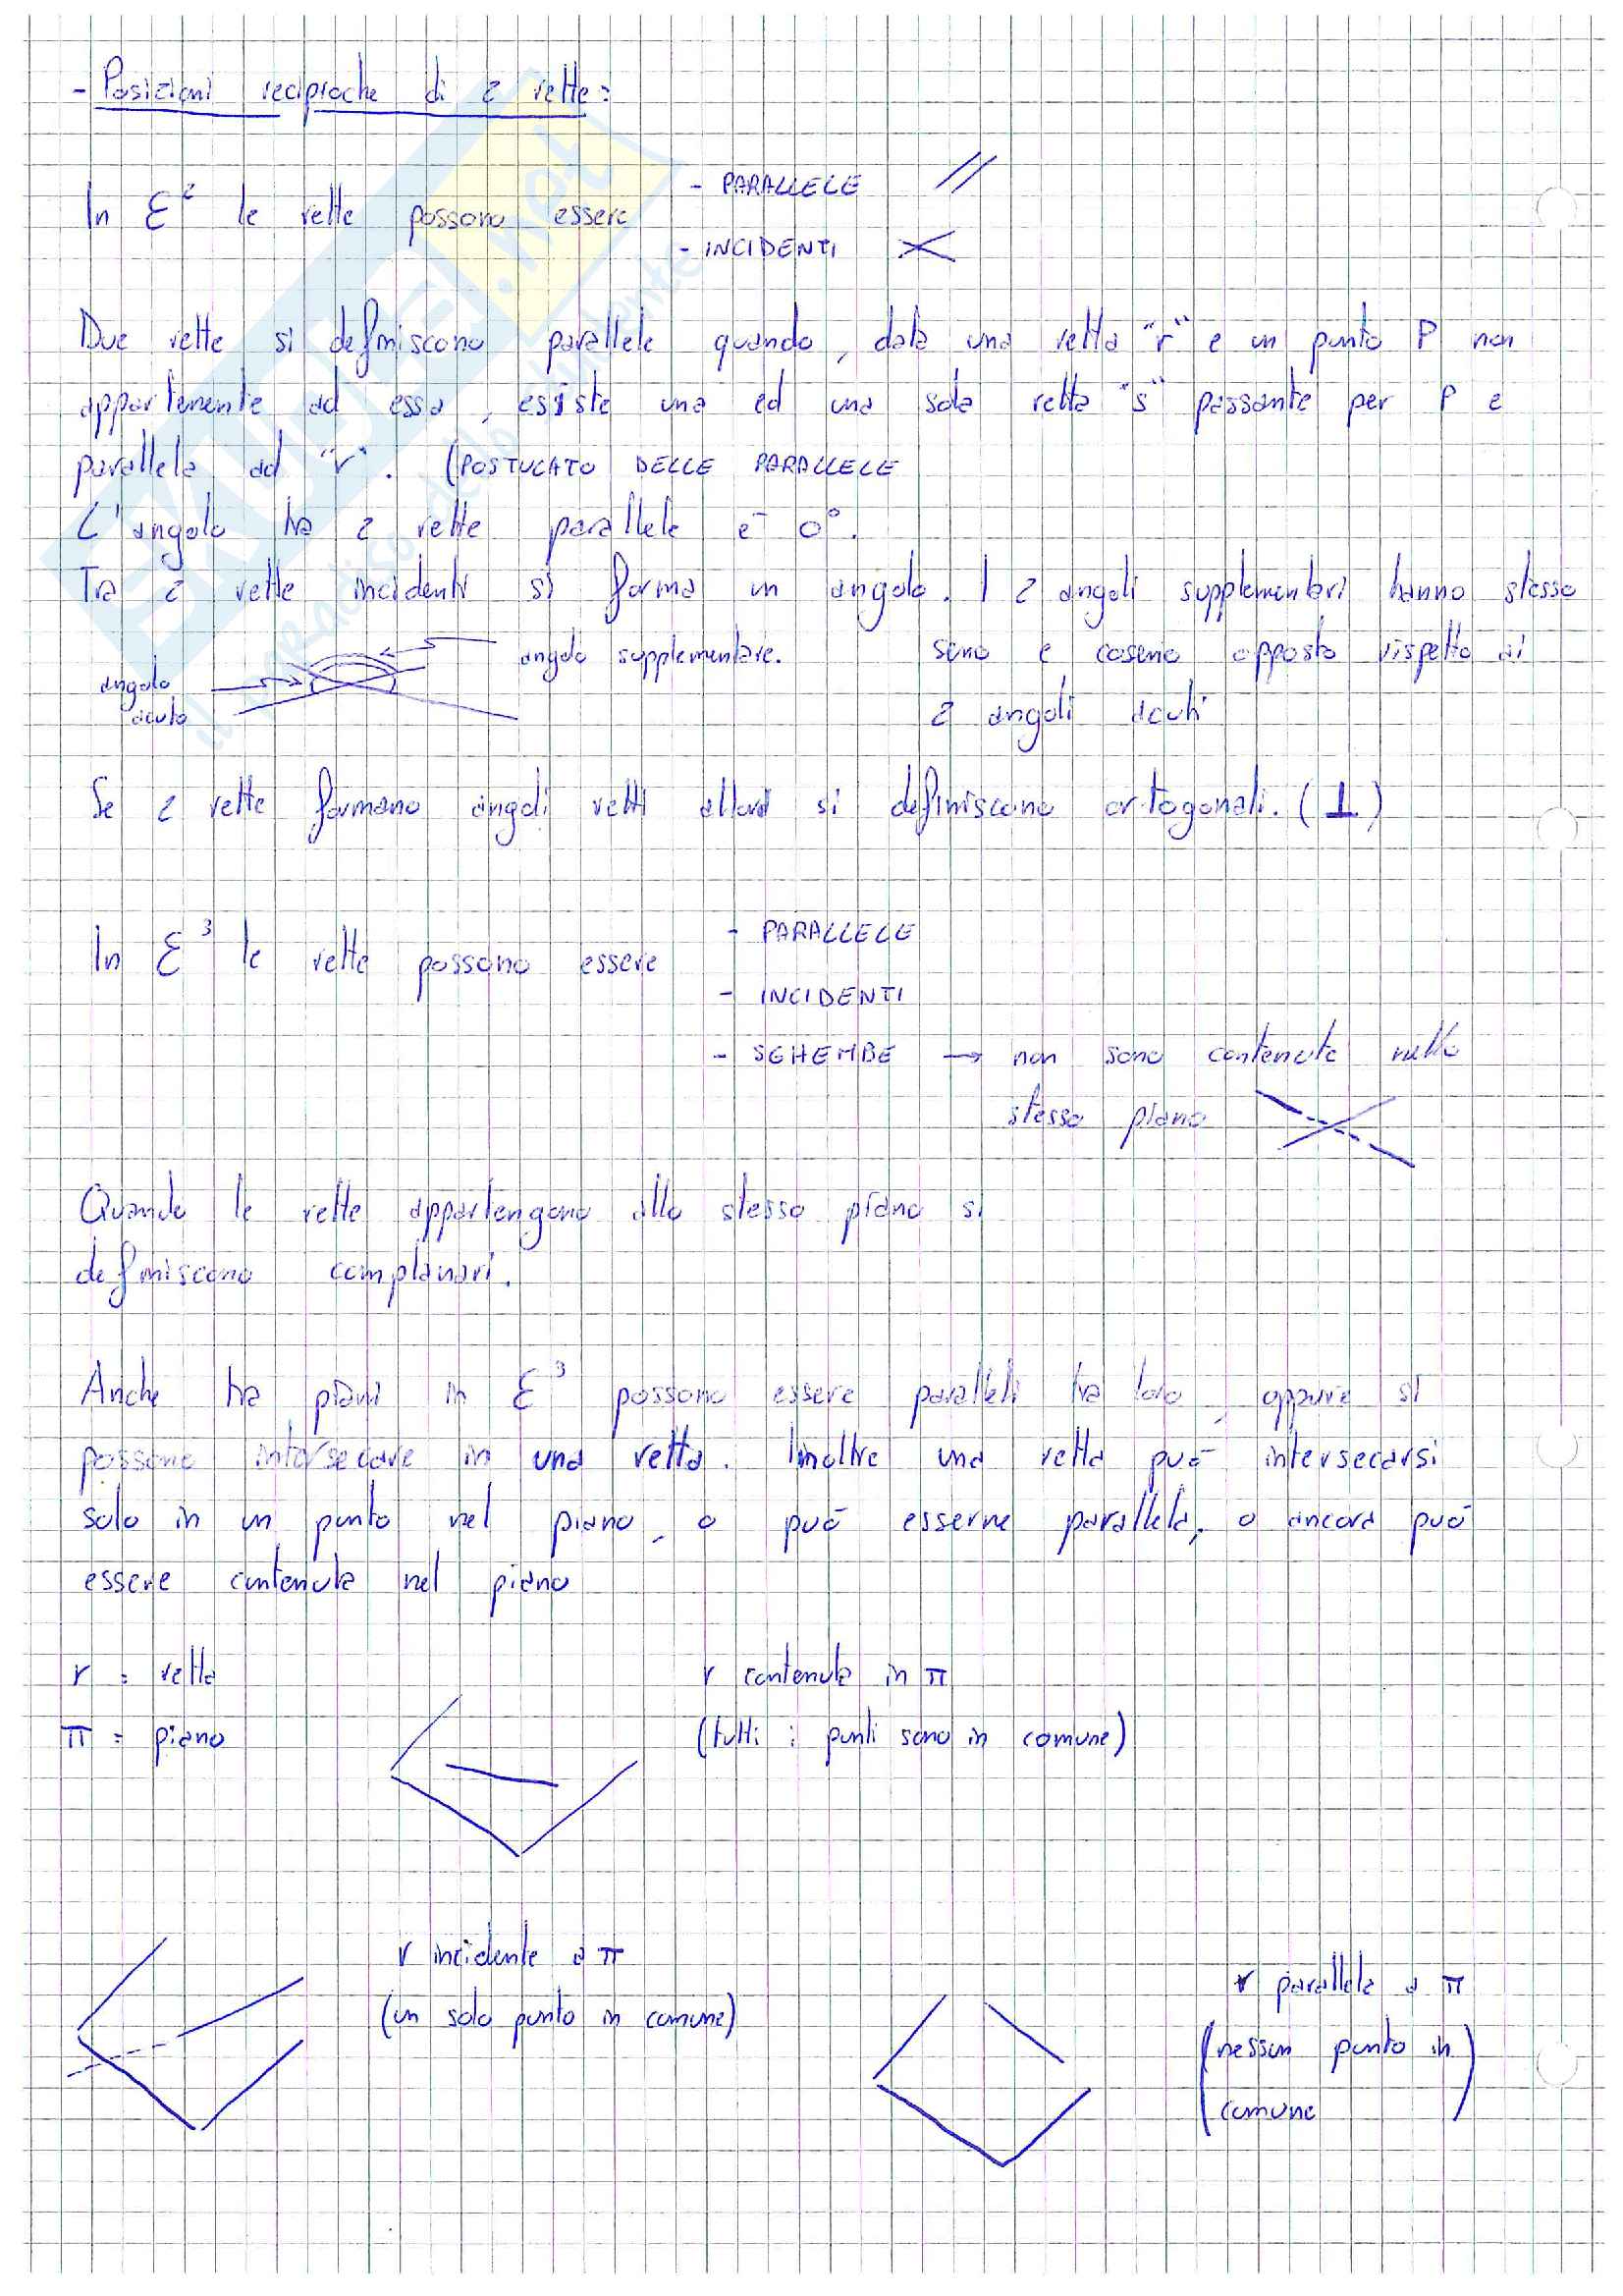 - Posizioni reciproche di 2 rette:
- PARALLELE
In ℰ² le rette possono essere
- INCIDENTI
Due rette si definiscono parallele quando, data una retta "r" e un punto P non
appartenente ad essa, esiste una ed una sola retta "s" passante per P e
parallela ad "r". (POSTULATO DELLE PARALLELE
L'angolo tra 2 rette parallele è 0°.
Tra 2 rette incidenti si forma un angolo. I 2 angoli supplementari hanno stesso
angolo supplementare. seno e coseno opposto rispetto ai
angolo
acuto
2 angoli acuti
Se 2 rette formano angoli retti allora si definiscono ortogonali. (⊥)
- PARALLELE
In ℰ³ le rette possono essere
- INCIDENTI
- SGHEMBE → non sono contenute nello
stesso piano
Quando le rette appartengono allo stesso piano si
definiscono complanari.
Anche tra piani in ℰ³ possono essere paralleli tra loro, oppure si
possono intersecare in una retta. Inoltre una retta può intersecarsi
solo in un punto nel piano, o può esserne parallela, o ancora può
essere contenuta nel piano
r = retta
r contenuta in π
π = piano
(tutti i punti sono in comune)
r incidente a π
(un solo punto in comune)
r parallela a π
(nessun punto in
comune)